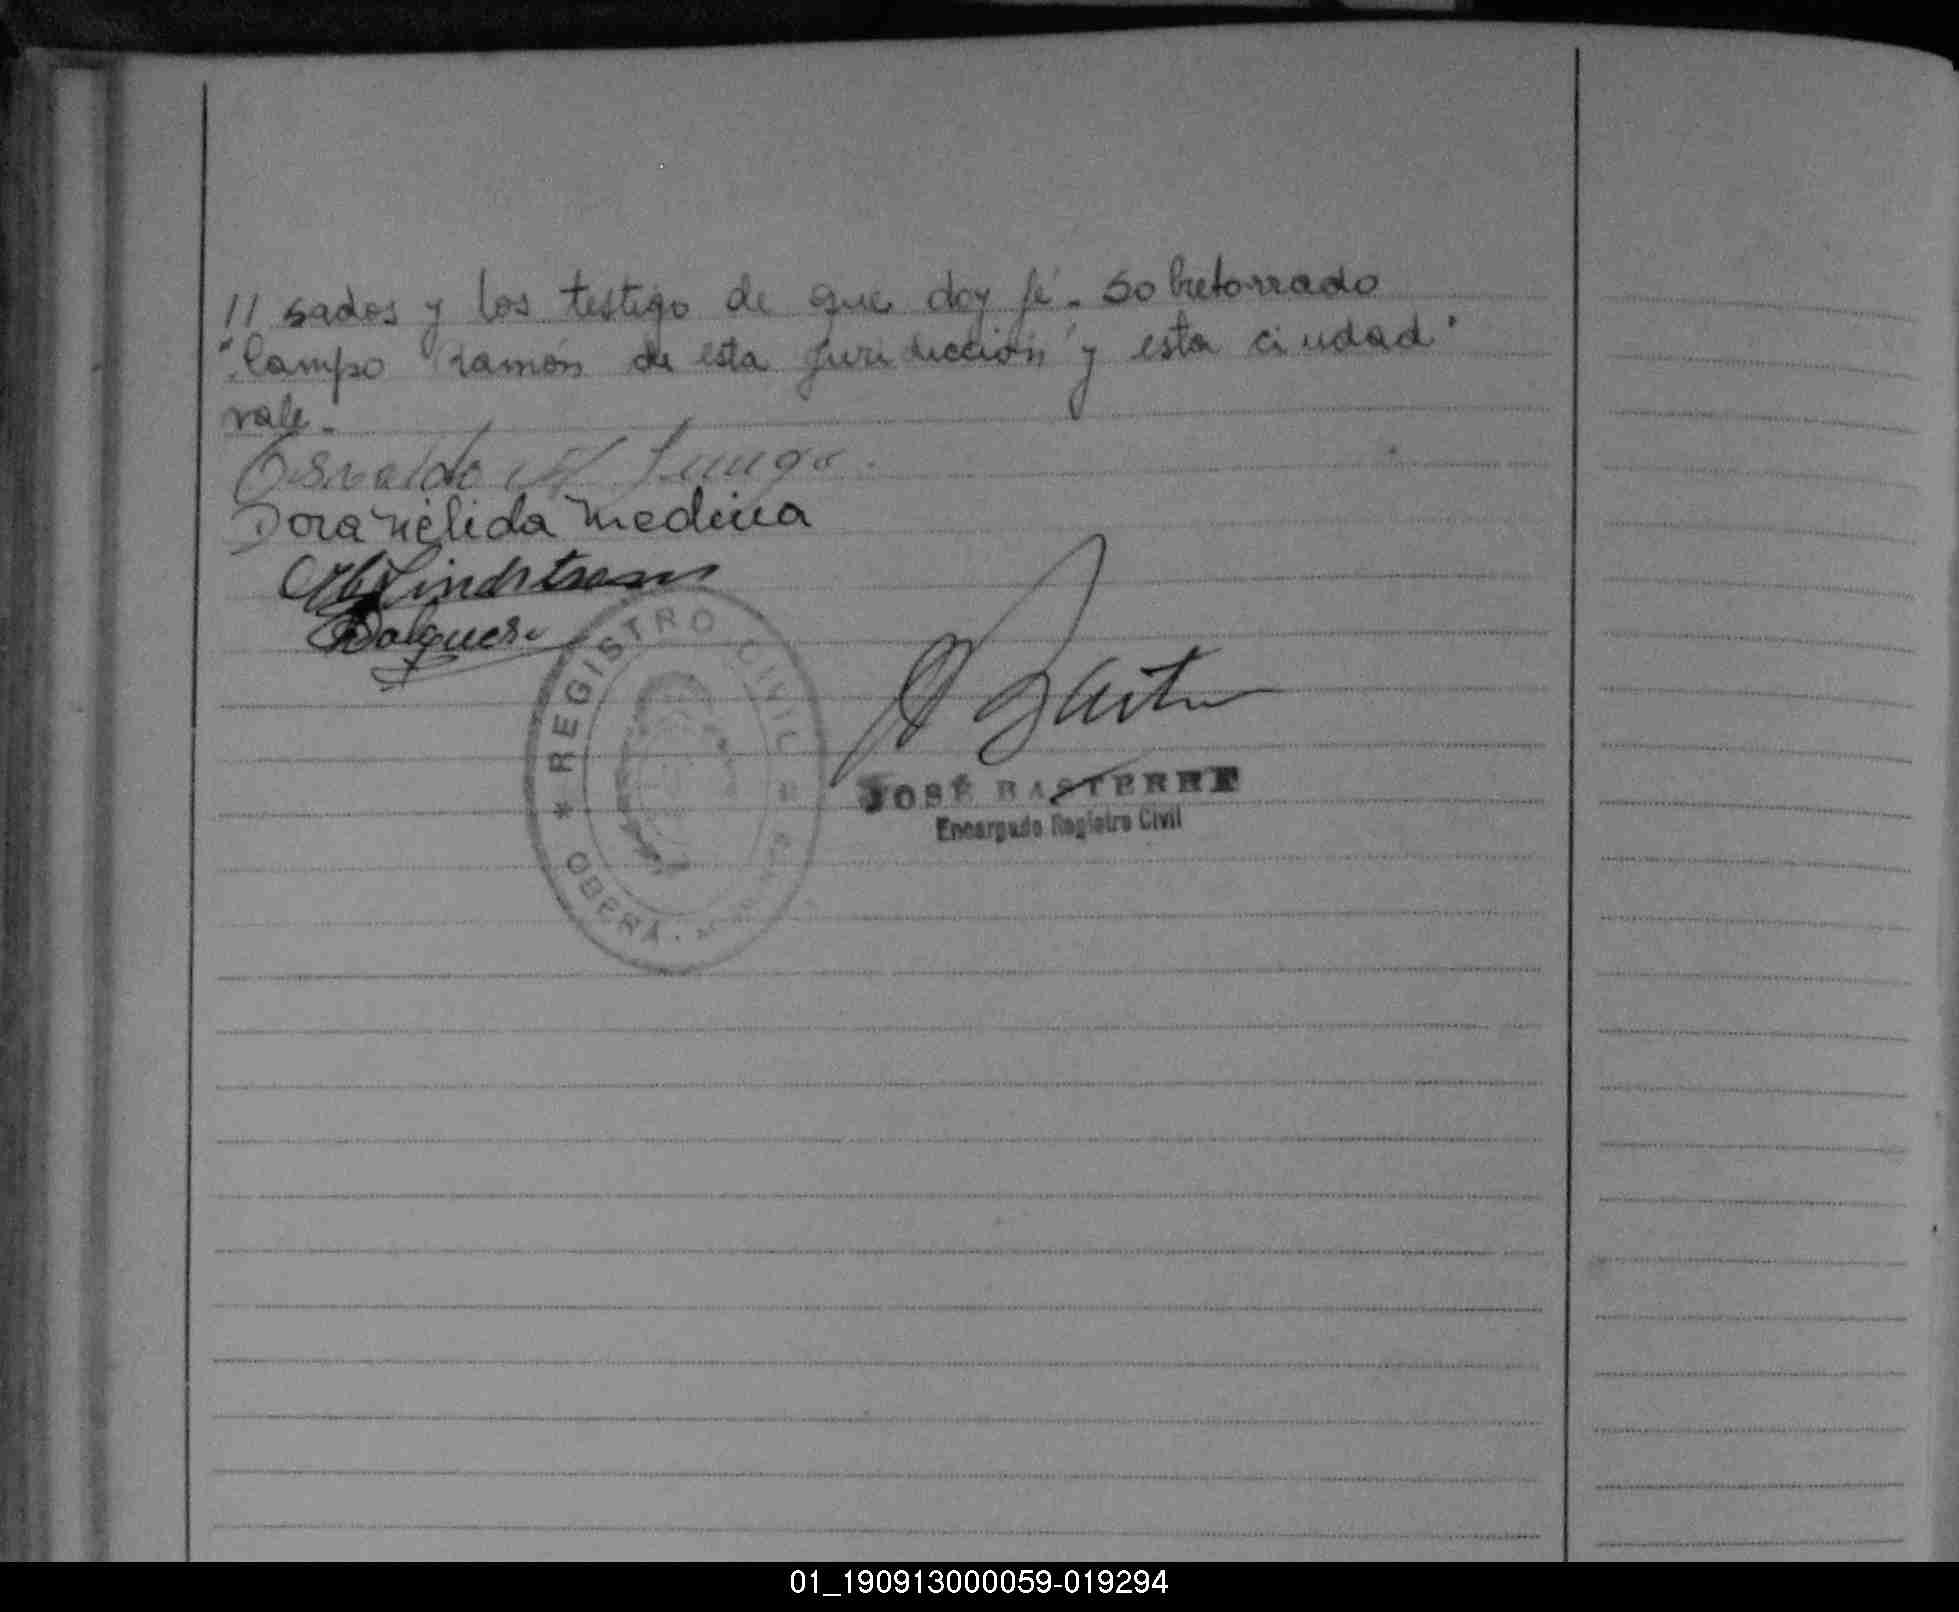 // sados y los testigo de que doy fé. Sobretorrado
"Campo Ramón de esta juridicción" y esta ciudad"
vale.
Osvaldo
Dora Nélida Medina
Lindstrom
REGISTRO CIVIL
OBERÁ
JOSÉ BASTERRE
Encargado Registro Civil
01_190913000059-019294